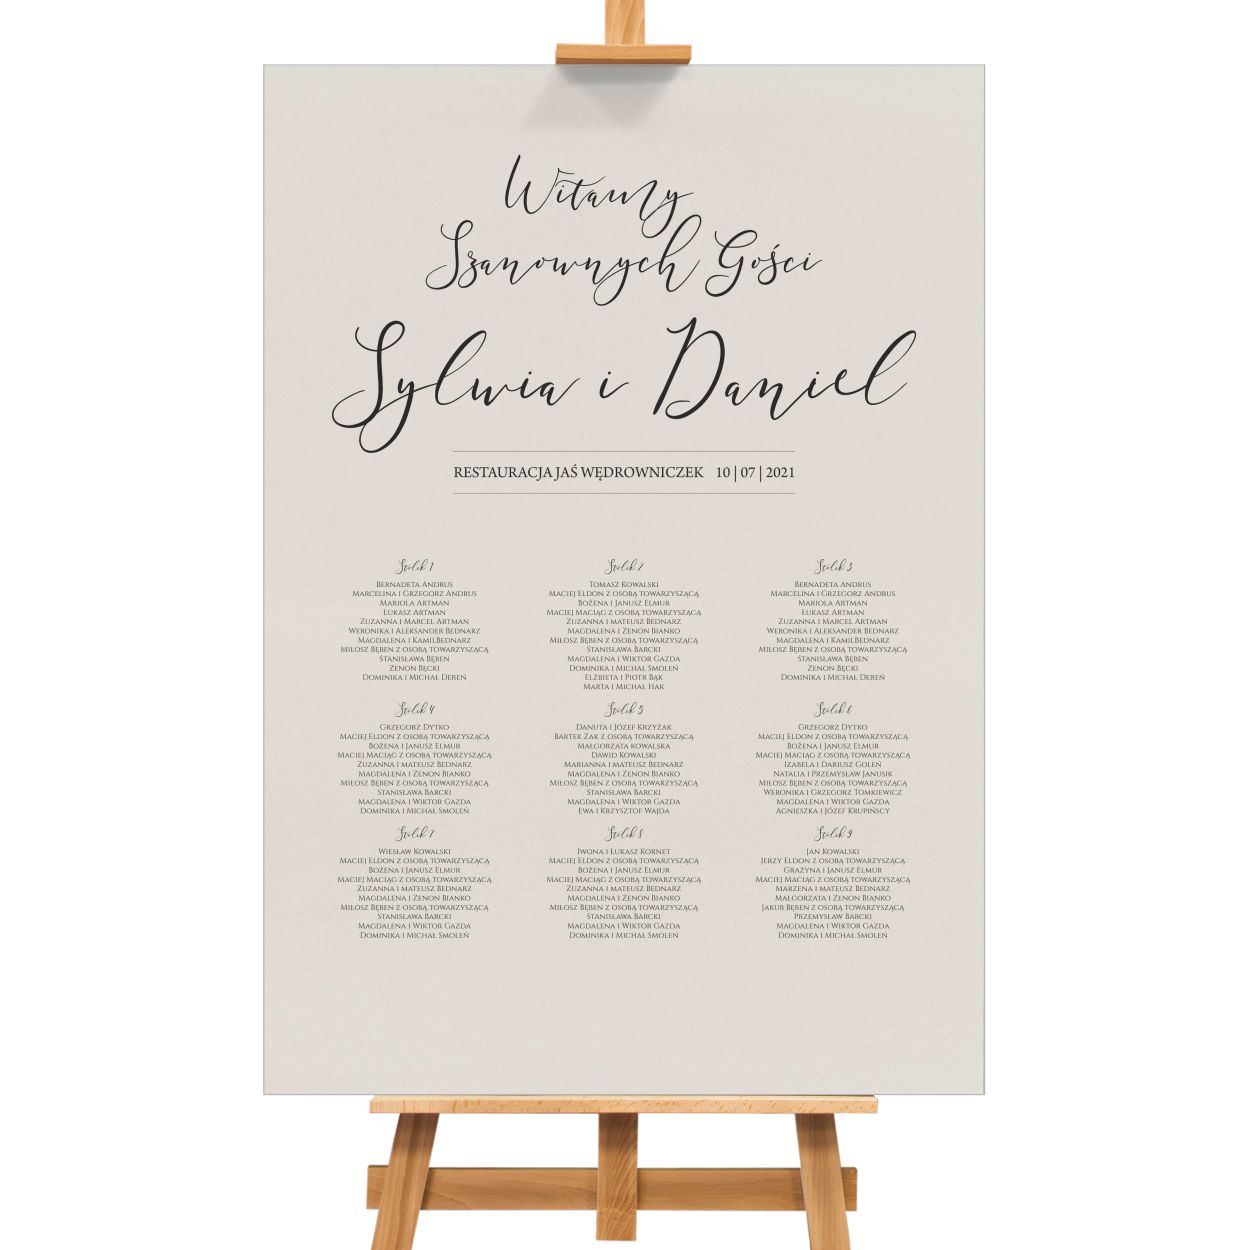 Witamy
Szanownych Gości
Sylwia i Daniel
RESTAURACJA JAŚ WĘDROWNICZEK 10 | 07 | 2021
Stolik 1
BERNADETA ANDRUS
MARCELINA I GRZEGORZ ANDRUS
MARIOLA ARTMAN
ŁUKASZ ARTMAN
ZUZANNA I MARCEL ARTMAN
WERONIKA I ALEKSANDER BEDNARZ
MAGDALENA I KAMILBEDNARZ
MIŁOSZ BĘBEN Z OSOBĄ TOWARZYSZĄCĄ
STANISŁAWA BĘBEN
ZENON BĘCKI
DOMINIKA I MICHAŁ DEREŃ
Stolik 2
TOMASZ KOWALSKI
MACIEJ ELDON Z OSOBĄ TOWARZYSZĄCĄ
BOŻENA I JANUSZ ELMUR
MACIEJ MACIĄG Z OSOBĄ TOWARZYSZĄCĄ
ZUZANNA I MATEUSZ BEDNARZ
MAGDALENA I ZENON BIANKO
MIŁOSZ BĘBEN Z OSOBĄ TOWARZYSZĄCĄ
STANISŁAWA BARCKI
MAGDALENA I WIKTOR GAZDA
DOMINIKA I MICHAŁ SMOLEŃ
ELŻBIETA I PIOTR BĄK
MARTA I MICHAŁ HAK
Stolik 3
BERNADETA ANDRUS
MARCELINA I GRZEGORZ ANDRUS
MARIOLA ARTMAN
ŁUKASZ ARTMAN
ZUZANNA I MARCEL ARTMAN
WERONIKA I ALEKSANDER BEDNARZ
MAGDALENA I KAMILBEDNARZ
MIŁOSZ BĘBEN Z OSOBĄ TOWARZYSZĄCĄ
STANISŁAWA BĘBEN
ZENON BĘCKI
DOMINIKA I MICHAŁ DEREŃ
Stolik 4
GRZEGORZ DYTKO
MACIEJ ELDON Z OSOBĄ TOWARZYSZĄCĄ
BOŻENA I JANUSZ ELMUR
MACIEJ MACIĄG Z OSOBĄ TOWARZYSZĄCĄ
ZUZANNA I MATEUSZ BEDNARZ
MAGDALENA I ZENON BIANKO
MIŁOSZ BĘBEN Z OSOBĄ TOWARZYSZĄCĄ
STANISŁAWA BARCKI
MAGDALENA I WIKTOR GAZDA
DOMINIKA I MICHAŁ SMOLEŃ
Stolik 5
DANUTA I JÓZEF KRZYŻAK
BARTEK ŻAK Z OSOBĄ TOWARZYSZĄCĄ
MAŁGORZATA KOWALSKA
DAWID KOWALSKI
MARIANNA I MATEUSZ BEDNARZ
MAGDALENA I ZENON BIANKO
MIŁOSZ BĘBEN Z OSOBĄ TOWARZYSZĄCĄ
STANISŁAWA BARCKI
MAGDALENA I WIKTOR GAZDA
EWA I KRZYSZTOF WAJDA
Stolik 6
GRZEGORZ DYTKO
MACIEJ ELDON Z OSOBĄ TOWARZYSZĄCĄ
BOŻENA I JANUSZ ELMUR
MACIEJ MACIĄG Z OSOBĄ TOWARZYSZĄCĄ
IZABELA I DARIUSZ GOLEŃ
NATALIA I PRZEMYSŁAW JANUSIK
MIŁOSZ BĘBEN Z OSOBĄ TOWARZYSZĄCĄ
WERONIKA I GRZEGORZ TOMKIEWICZ
MAGDALENA I WIKTOR GAZDA
AGNIESZKA I JÓZEF KRUPIŃSCY
Stolik 7
WIESŁAW KOWALSKI
MACIEJ ELDON Z OSOBĄ TOWARZYSZĄCĄ
BOŻENA I JANUSZ ELMUR
MACIEJ MACIĄG Z OSOBĄ TOWARZYSZĄCĄ
ZUZANNA I MATEUSZ BEDNARZ
MAGDALENA I ZENON BIANKO
MIŁOSZ BĘBEN Z OSOBĄ TOWARZYSZĄCĄ
STANISŁAWA BARCKI
MAGDALENA I WIKTOR GAZDA
DOMINIKA I MICHAŁ SMOLEŃ
Stolik 8
IWONA I ŁUKASZ KORNET
MACIEJ ELDON Z OSOBĄ TOWARZYSZĄCĄ
BOŻENA I JANUSZ ELMUR
MACIEJ MACIĄG Z OSOBĄ TOWARZYSZĄCĄ
ZUZANNA I MATEUSZ BEDNARZ
MAGDALENA I ZENON BIANKO
MIŁOSZ BĘBEN Z OSOBĄ TOWARZYSZĄCĄ
STANISŁAWA BARCKI
MAGDALENA I WIKTOR GAZDA
DOMINIKA I MICHAŁ SMOLEŃ
Stolik 9
JAN KOWALSKI
JERZY ELDON Z OSOBĄ TOWARZYSZĄCĄ
GRAŻYNA I JANUSZ ELMUR
MACIEJ MACIĄG Z OSOBĄ TOWARZYSZĄCĄ
MARZENA I MATEUSZ BEDNARZ
MAŁGORZATA I ZENON BIANKO
JAKUB BĘBEN Z OSOBĄ TOWARZYSZĄCĄ
PRZEMYSŁAW BARCKI
MAGDALENA I WIKTOR GAZDA
DOMINIKA I MICHAŁ SMOLEŃ